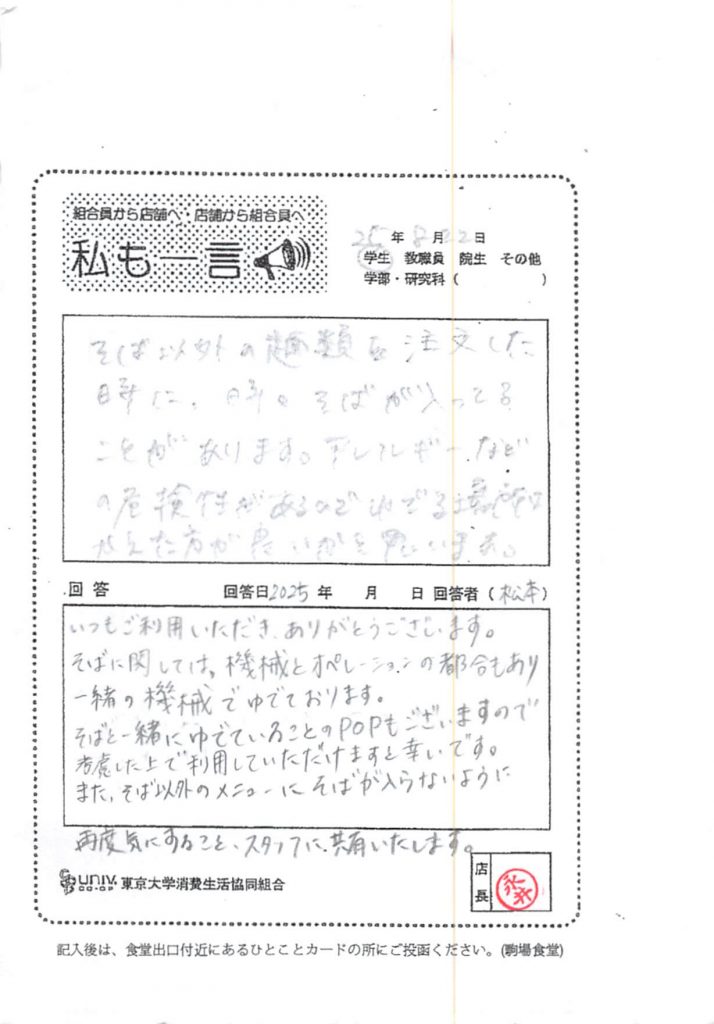 組合員から店舗へ・店舗から組合員へ
私も一言
25年8月22日
学生 教職員 院生 その他
学部・研究科（ ）
そば以外の麺類を注文した
時に、時々そばが入ってる
ことがあります。アレルギーなど
の危険性があるのでゆでる場所は
かえた方が良いかと思います。
回答 回答日2025年 月 日 回答者（松本）
いつもご利用いただき、ありがとうございます。
そばに関しては、機械とオペレーションの都合もあり
一緒の機械でゆでております。
そばと一緒にゆでていることのPOPもございますので
考慮した上で利用していただけますと幸いです。
また、そば以外のメニューにそばが入らないように
再度気にすること、スタッフに共有いたします。
univ. CO-OP 東京大学消費生活協同組合
店長
記入後は、食堂出口付近にあるひとことカードの所にご投函ください。(駒場食堂)